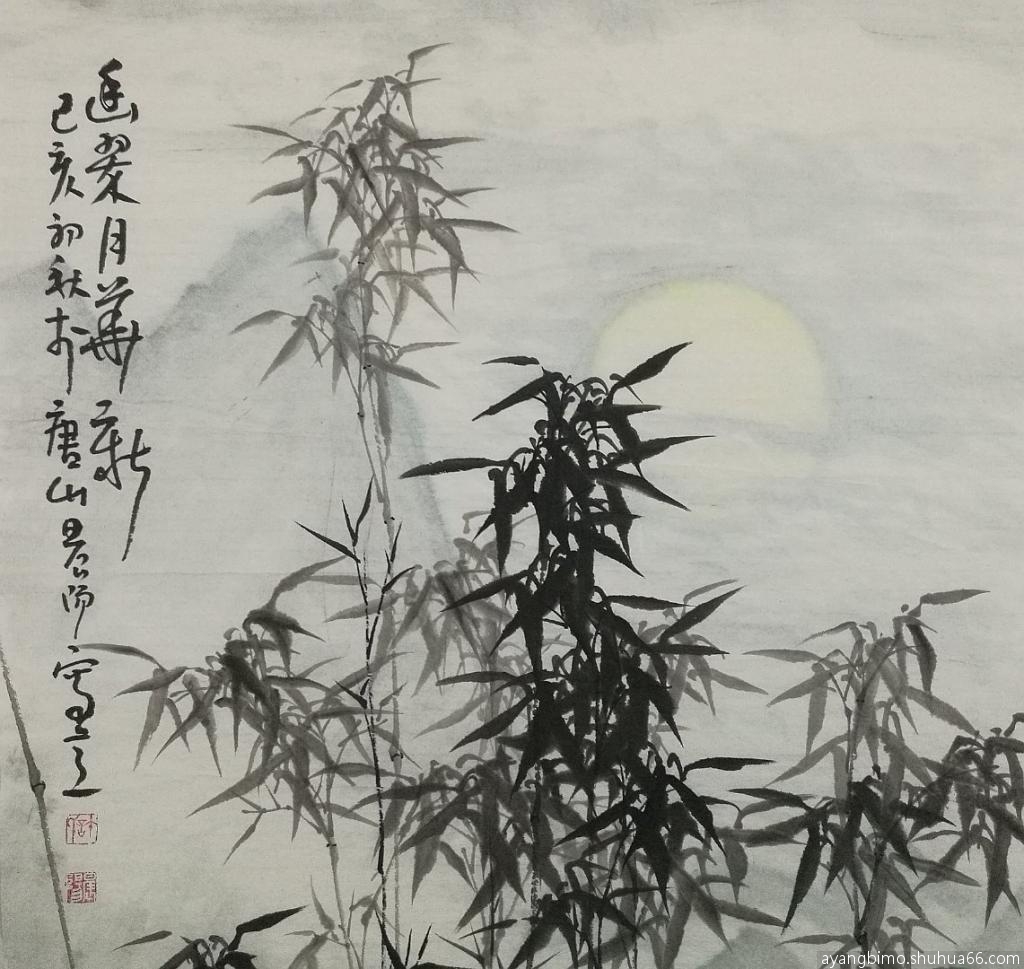 幽翠月華新
己亥初秋於唐山晨阳寫之
ayangbimo.shuhua66.com